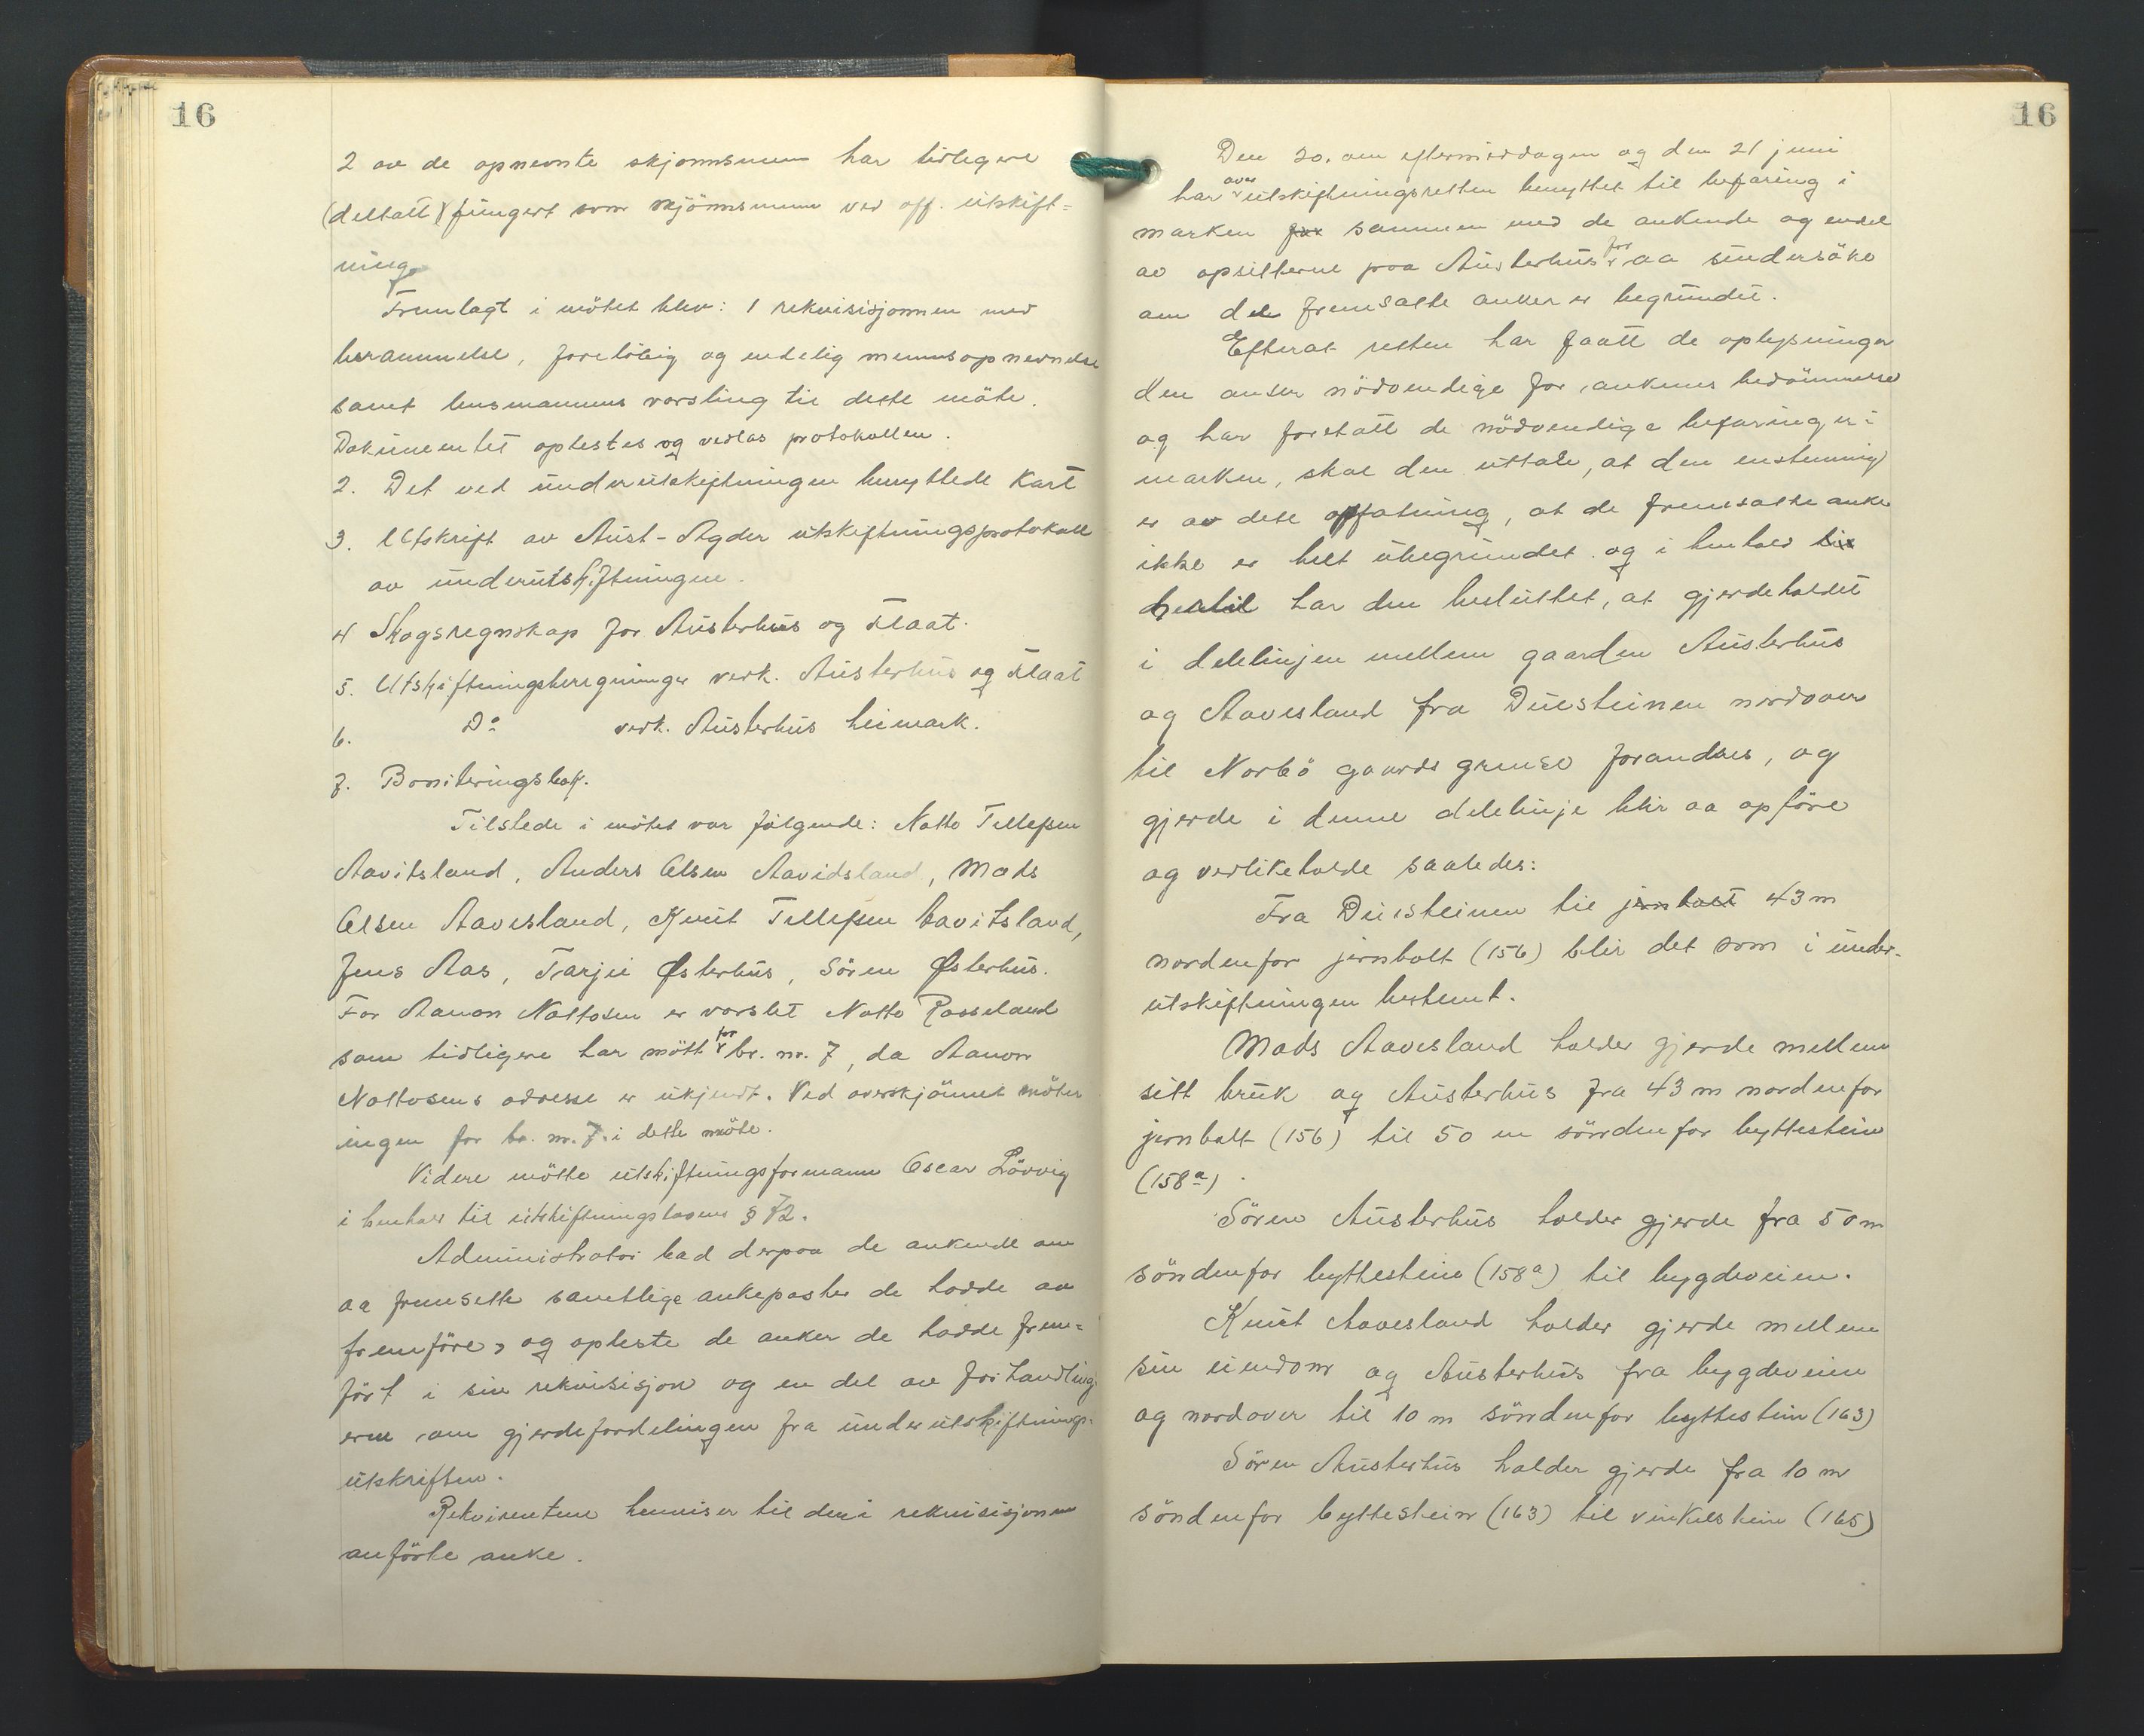 16
2 av de opnevnte skjønnsmenn har tidligere
(deltatt) fungert som skjønnsmenn ved off. utskift=
ning.
Fremlagt i møtet blev: 1 rekvisisjonnen med
berammelse, foreløbig og endelig mennsopnevnelse
samt lensmannens varsling til dette møte.
Dokumentet oplestes og vedlas protokollen.
2. Det ved underutskiftningen benyttede Kart
3. Utskrift av Aust-Agder utskiftningsprotokoll
av underutskiftningen.
4 Skogsregnskap for Austerhus og Flaat.
5. Utskiftningsberegninger vedk. Austerhus og Flaat
6. Do vedk. Austerhus heimark.
7. Boniteringsbok.
Tilstede i møtet var følgende: Notto Tellefsen
Aavitsland, Anders Olsen Aavidsland, Mads
Olsen Aavesland, Knut Tellefsen Aavitsland,
Jens Aas, Tarjei Østerhus, Sören Østerhus.
For Aanon Nottosen er varslet Notto Rosseland
som tidligere har møtt for br. nr. 7, da Aanon
Nottosens adresse er ukjendt. Ved overskjönnet møter
ingen for br. nr. 7. i dette møte.
Videre møtte utskiftningsformann Oscar Lövvig
i henhold til utskiftningslovens § 72.
Administrator bad derpaa de ankende om
aa fremsette samtlige ankeposter de hadde aa
fremföre, og opleste de anker de hadde frem=
fört i sin rekvisisjon og en del av forhandling
erne om gjerdefordelingen fra underutskiftnings-
utskriften.
Rekvirentene henviser til den i rekvisisjonen
anförte anke.
16
Den 20. om eftermiddagen og den 21 juni
har over utskiftningsretten benyttet til befaring i
marken for sammen med de ankende og endel
av opsitterne paa Austerhus for aa undersöke
om de fremsatte anker er begrundet.
Efterat retten har faatt de oplysninger
den anser nödvendige for ankenes bedömmelse
og har foretatt de nödvendige befaringer i
marken, skal den uttale, at den enstemmig
er av dett opfatning, at de fremsatte anke
ikke er helt ubegrundet og i henhold til
hertil har den besluttet, at gjerdeholdet
i delelinjen mellem gaarden Austerhus
og Aavesland fra Duesteinen nordover
til Norbö gaards grense forandres, og
gjerde i denne delelinje blir aa opföre
og vedlikeholde saaledes:
Fra Duesteinen til jernbolt 43 m
nordenfor jernbolt (156) blir det som i under-
utskiftningen bestemt.
Mads Aavesland holder gjerde mellem
sitt bruk og Austerhus fra 43 m nordenfor
jernbolt (156) til 50 m söndenfor byttestein
(158a).
Sören Austerhus holder gjerde fra 50 m
söndenfor byttestein (158a) til bygdeveien.
Knut Aavesland holder gjerde mellem
sin eiendom og Austerhus fra bygdeveien
og nordover til 10 m söndenfor byttestein (163)
Sören Austerhus holder gjerde fra 10 m
söndenfor byttestein (163) til vinkelstein (165)